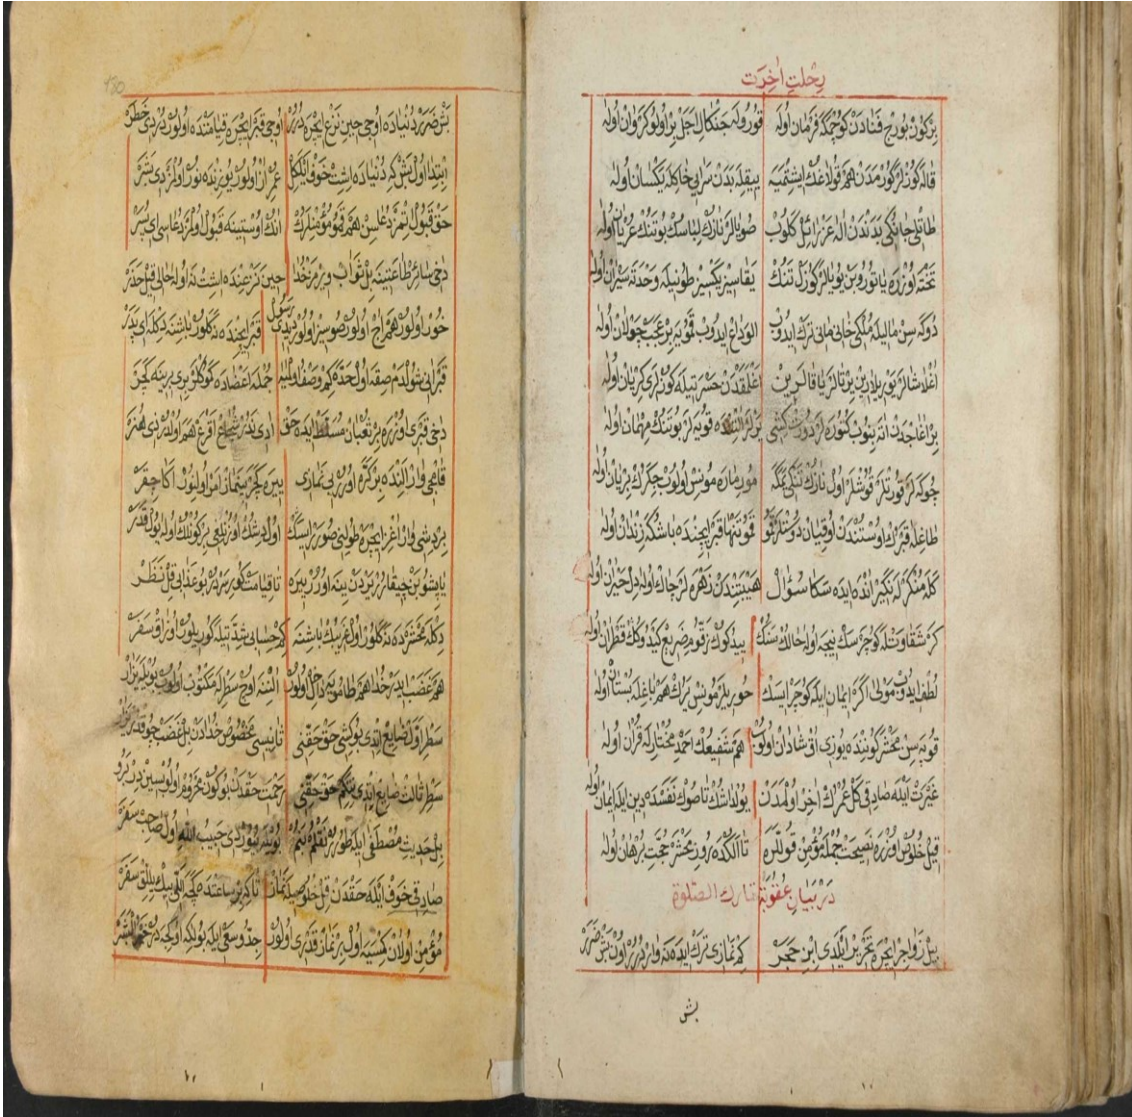 رحلت اخرت
بر كون بو برج فنادن كوچمكه فرمان اوله قوروله چنكال اجل بر اولو كروان اوله
قاله كوزلر كورمدن هم قولاغك ايشتميه ييقله بدن سرايى خاكله يكسان اوله
طاتلى جانكى بدندن اله عزرائل كلوب صويالر نازك لباسك بو تنك عريان اوله
تخته اوزره ياتوروبن يويالر كوزل تنك يقاسيز يكسيز طونيله وحدته سيران اوله
دوكه سن ماليله ملكى خانى مانى ترك ايدوب الوداع ايدوب قمويه بر عجب جولان اوله
اغلاشالر يوريلارين يرتالر ياقالرين اغلمقدن حسرتيله كوزلرى كريان اوله
بر اغاجدن اته بنوب كتوره لر دورت كشى ير التنده قويه لر بو تنك مهمان اوله
چوكه لر قورتلر قوشلر اول نازك تنكى يمكه مور مار مونس اولوب جكرك بريان اوله
طاغله قبرك اوستندن اوقيان دوستلر قمو قمو تنها قبر ايچنده باشكه زندان اوله
كله منكرله نكير انده ايده سكا سؤال هيبتندن زهره لر چاك اوله دل حيران اوله
كر شقاوتله كوچرسك نيجه اوله حالك سنك ييدكوك زقوم ضريع كيدوكك قطران اوله
لطف ايدوب مولى اكر ايمان ايله كوچرايسك حوريلر مونس يرك هم باغله بستان اوله
قوپه سن محشر كوننده يوزى اق شادان اولوب هم شفيعك احمد مختارله قران اوله
غيرت ايله صادقى كل عمرك اخر اولمدن يولداشك تا صوك نفسده دين ايله ايمان اوله
قيل خلوص اوزره نصيحت جمله مؤمن قوللره تا الكده روز محشر حجت برهان اوله
در بيان عقوبة تارك الصلوة
بيل زواجر ايچره تحرير ايلدى ابن حجر كم نمازى ترك ايده نه واردرر اون بش ضرر
بش
بش ضرر دنياده اوچى حين نزع ايچره درر اوچى قبر ايچره قيامتده اولور دردى خطر
ابتدا اول بش كه دنياده اشت خوف ايلكل عمرى از اولور يوزنده نور اولمز دى بشر
حق قبول اتمز دعاسن هم قمو مؤمنلرك انك اوستينه قبول اولمز دعاسى اى پسر
دخى سائر طاعتينه بل ثواب ويرمز خدا حين نزعنده اشت نه اوله حالى قيل حذر
خور اولور هم اج اولور صوسز اولور ديدى رسول قبر ايچنده نه كلور باشنه دكله اى پدر
قبر انى شولدم صقه اول حده كم وصف اولميه جمله اعضاده كمكلر برى برينه كچر
دخى قبرى اوزره بر ثعبان مسلط ايده حق ادى ندر شجاع اقرع هم اولدر نى هنر
قامچى وار النده بر كره اورر بى نمازى ييره كچر يتمش ارشن اولونور اكا حفر
بر ديشى وار اغز ايچره طولنى صورر ايسك اول ديشك اوزنلغى بر كونلك اوله يول قدر
ياپشوبن چيقارر يردن ينه اورر ييره تا قيامت كورر مرده بو عذابى قل نظر
دكله محشرده نه كلور اول غريبك باشنه كم حسابى شدتيله كوريلور اوراق سفر
هم غضب ايده خدا هم طامويه داخل اولور النده اوچ سطرله مكتوب اولور بويله يزار
سطر اول ضايع ايتدى بو كشى حق حقنى ثانيسى مخصوص خدادن بل غضب چوقدر
سطر ثالث ضايع ايتدى بتكم حق حقنى رحمت حقدن بو كون محروم اولورسين
بل حديث مصطفى ايله طورر نقلم بنم بويله بيوردى حبيب الله اول صاحب سفر
صادقى خوف ايله حقدن قل خلوصيله نماز تا كه بر ساعتده كچه اللى بيك ييللق سفر
مؤمن اولان كمسيه اول بر نماز قدرى اولور جد و سعى ايله بولكه اولجه در خير البشر